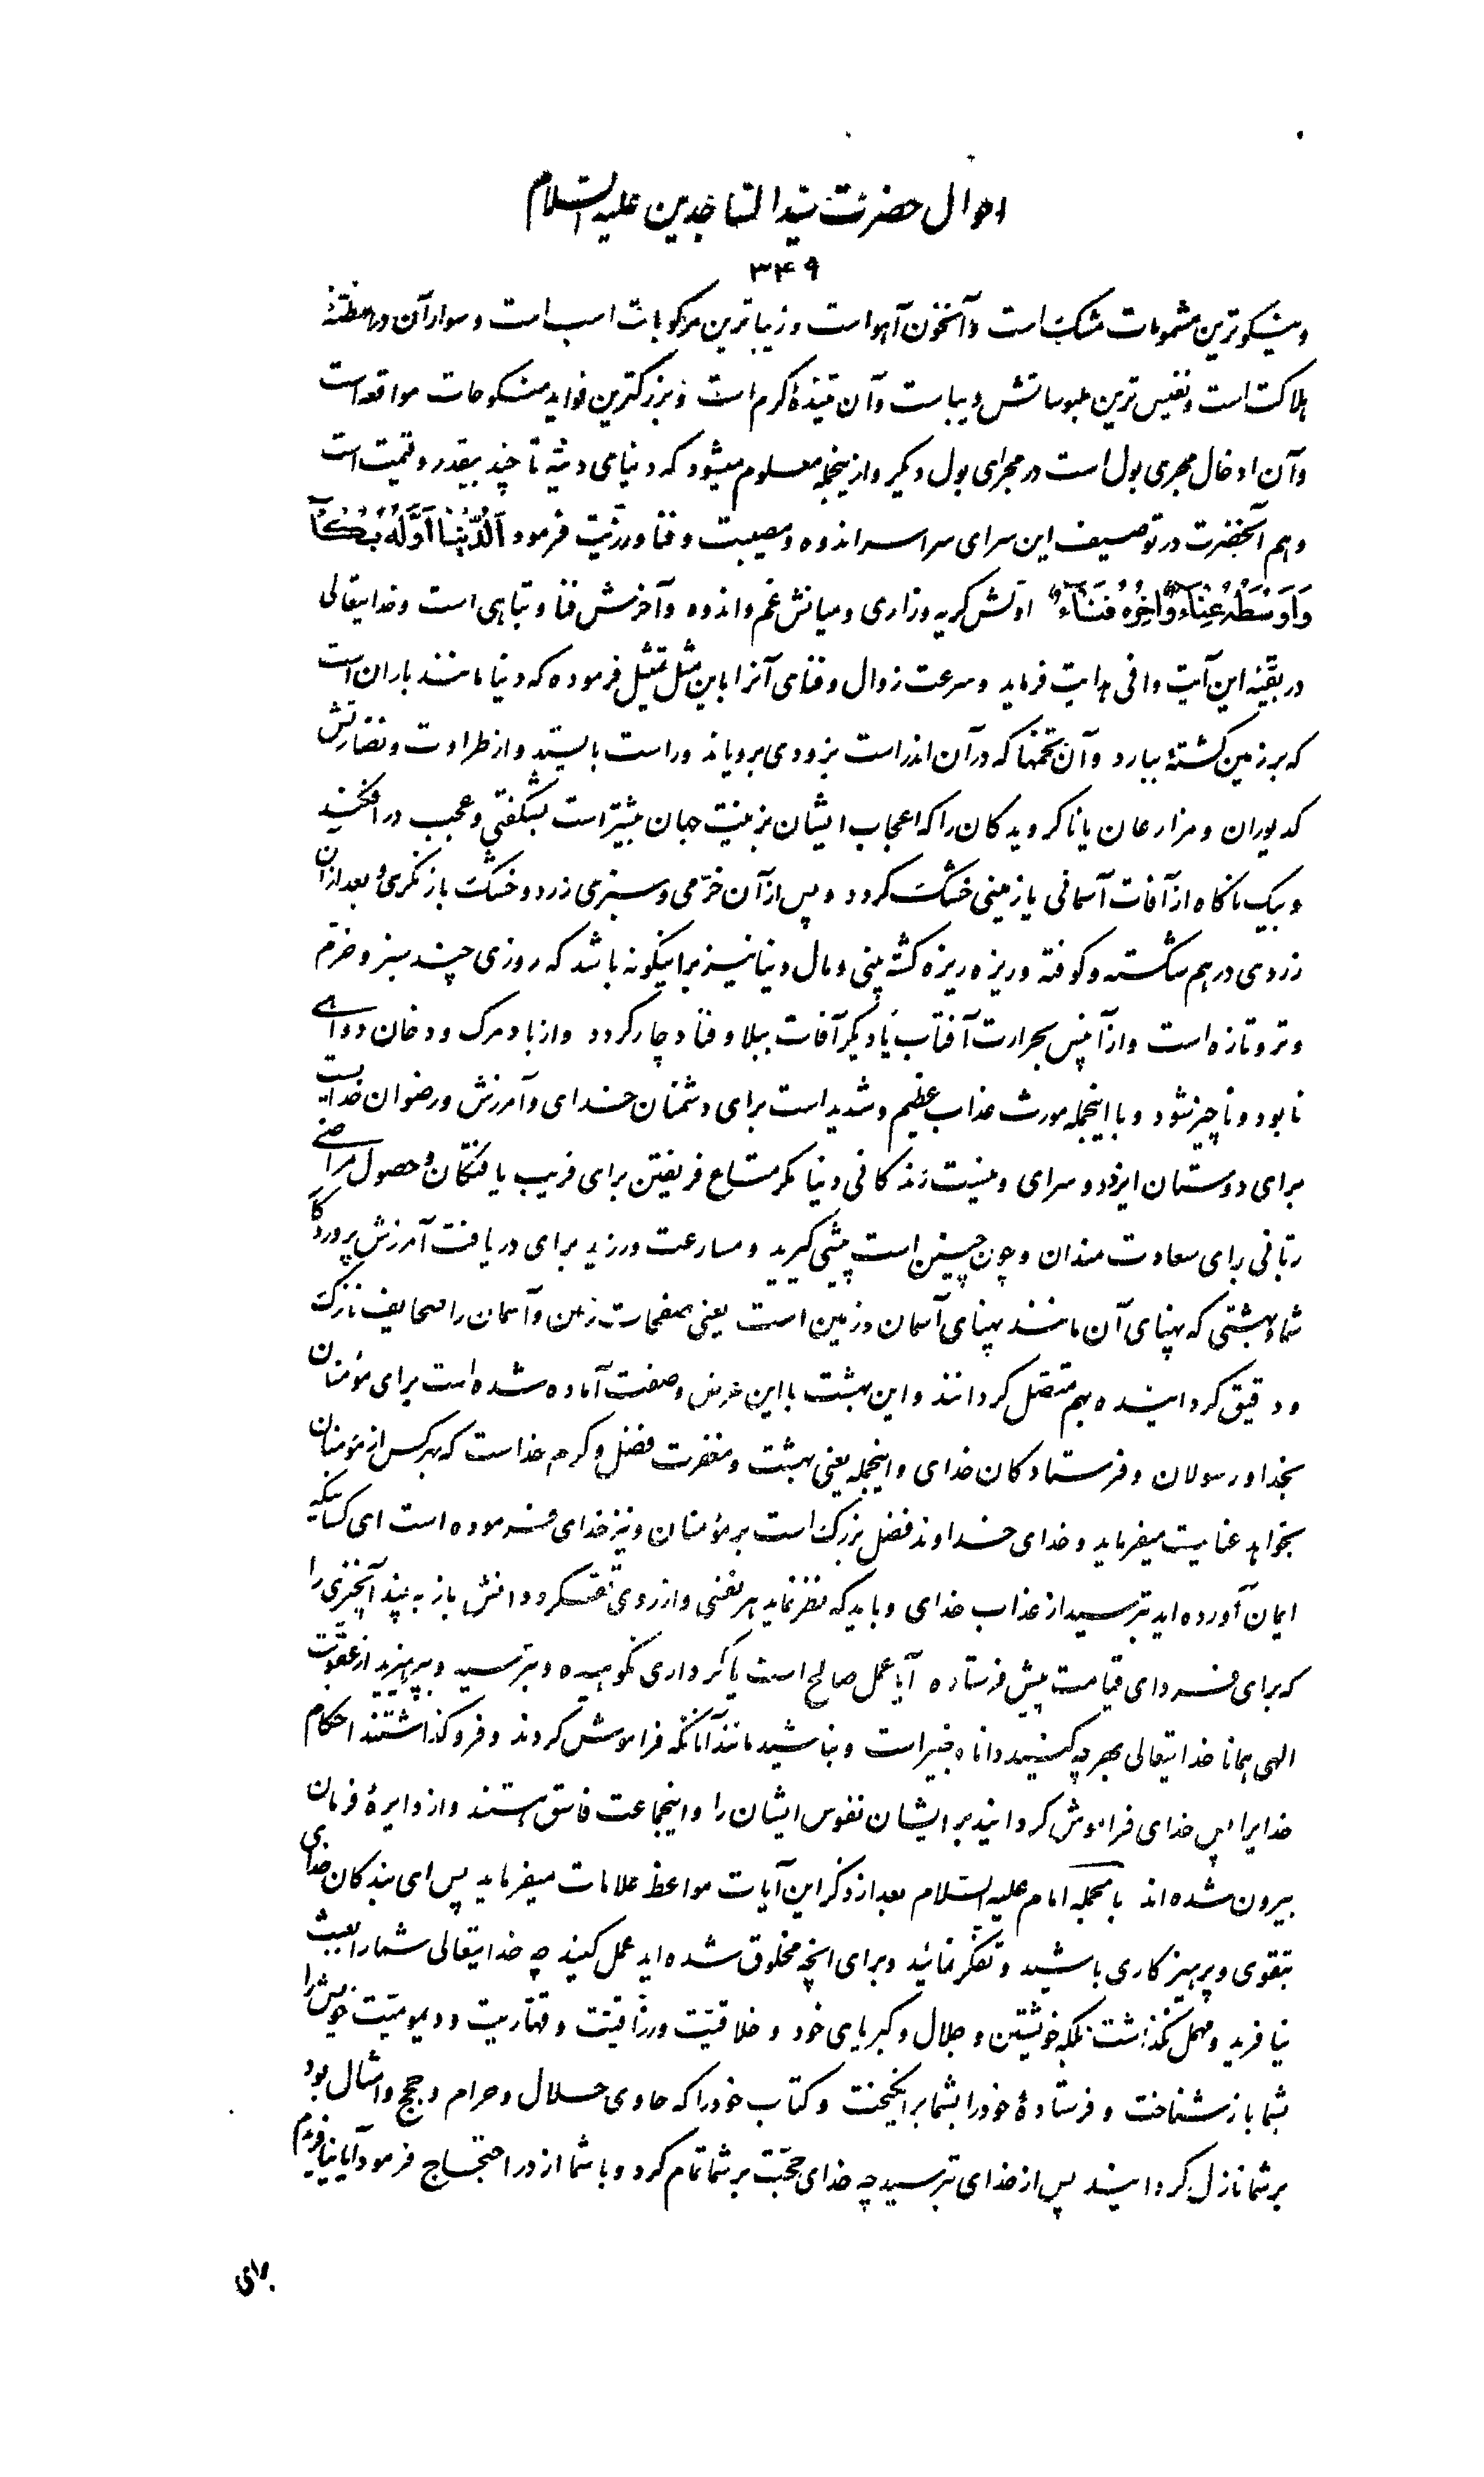 احوال حضرت سید الساجدین علیه السلام
۳۴۹
و نیکوترین مشمومات مشک است و آنخون آهو است و زیباترین مرکوبات اسب است و سوار آن در مظنّهٔ
هلاکت است و نفیس ترین ملبوساتش دیباست و آن تنیدهٔ کرم است و بزرکترین فواید منکوحات مواقعه است
و آن ادخال مجری بول است در مجرای بول دیکر و از ینجمله معلوم میشود که دنیای دنیّه تا چند بیقدر و قیمت است
و هم آنحضرت در توصیف این سرای سراسر اندوه و مصیبت و فنا و رزیّت فرمود اَلدُّنْیٰا اَوَّلُهُ بُکٰآءٌ
وَ اَوْسَطُهُ عَنٰآءٌ وَ اٰخِرُهُ فَنٰآءٌ اوّلش کریه و زاری و میانش غم و اندوه و آخرش فنا و تباهی است و خدایتعالی
در بقیّه این آیت وافی هدایت فرماید و سرعت زوال و فنای آنرا باین مثل تمثیل فرموده که دنیا مانند باران است
که بر زمین کشتهٔ ببارد و آن تخمها که در آن اندر است بزودی برویاند و راست بایستد و از طراوت و نضارتش
کدیوران و مزارعان یا ناکرویدکان را که اعجاب ایشان بزینت جهان بیشتر است بشکفتی و عجب در افکند
و بیک ناکاه از آفات آسمانی یا زمینی خشک کردد و پس از آن خرّمی و سبزی زرد و خشک باز نکری و بعد از آن
زردی در هم شکسته و کوفته و ریزه ریزه کشته بینی و مال دنیا نیز براینکونه باشد که روزی چند سبز و خرّم
و تر و تازه است و از آن پس بحرارت آفتاب یا دیکر آفات ببلا و فنا دچار کردد و از باد مرک و دخان دواهی
نابود و ناچیز شود و با اینجمله مورث عذاب عظیم و شدید است برای دشمنان خدای و آمرزش و رضوان خدایست
برای دوستان ایزد دو سرای و نیست زندکانی دنیا مکر متاع فریفتن برای فریب یافتکان و حصول مراضی
ربّانی برای سعادت مندان و چون چنین است پیشی کیرید و مسارعت ورزید برای دریافت آمرزش پروردکار
شما و بهشتی که پهنای آن مانند پهنای آسمان و زمین است یعنی صفحات زمین و آسمان را صحایف نازک
و دقیق کردانیده بهم متصل کردانند و این بهشت با این عرض و صفت آماده شده است برای مؤمنان
بخدا و رسولان و فرستادکان خدای و اینجمله یعنی بهشت و مغفرت فضل و کرم خداست که بهر کس از مؤمنان
بخواهد عنایت میفرماید و خدای خداوند فضل بزرک است بر مؤمنان و نیز خدای فرموده است ای کسانیکه
ایمان آورده اید بترسید از عذاب خدای و باید که نظر نماید هر نفسی و از روی تفکر و دانش باز به بیند آنچیزی را
که برای فردای قیامت پیش فرستاده آیا عمل صالح است یا کرداری نکوهیده و بترسید و بپرهیزید از عقوبت
الهی همانا خدایتعالی بهر چه کنید دانا و خبیر است و نباشید مانند آنانکه فراموش کردند و فرو کذاشتند احکام
خدایرا پس خدای فراموش کردانید بر ایشان نفوس ایشان را و اینجماعت فاسق هستند و از دایرهٔ فرمان
بیرون شده اند بالجمله امام علیه السلام بعد از ذکر این آیات مواعظ علامات میفرماید پس ای بندکان خدای
بتقوی و پرهیز کاری باشید و تفکّر نمائید و برای آنچه مخلوق شده اید عمل کنید چه خدایتعالی شما را بعبث
نیافرید و مهمل نکذاشت بلکه خویشتن و جلال و کبریای خود و خلاقیّت و رزّاقیّت و قهّاریت و دیمومیّت خویش را
بشما باز شناخت و فرستادهٔ خود را بشما برانکیخت و کتاب خود را که حاوی حلال و حرام و حجج و امثال بود
بر شما نازل کردانید پس از خدای بترسید چه خدای حجّت بر شما تمام کرد و با شما از در احتجاج فرمود آیا نیافریدم
برای